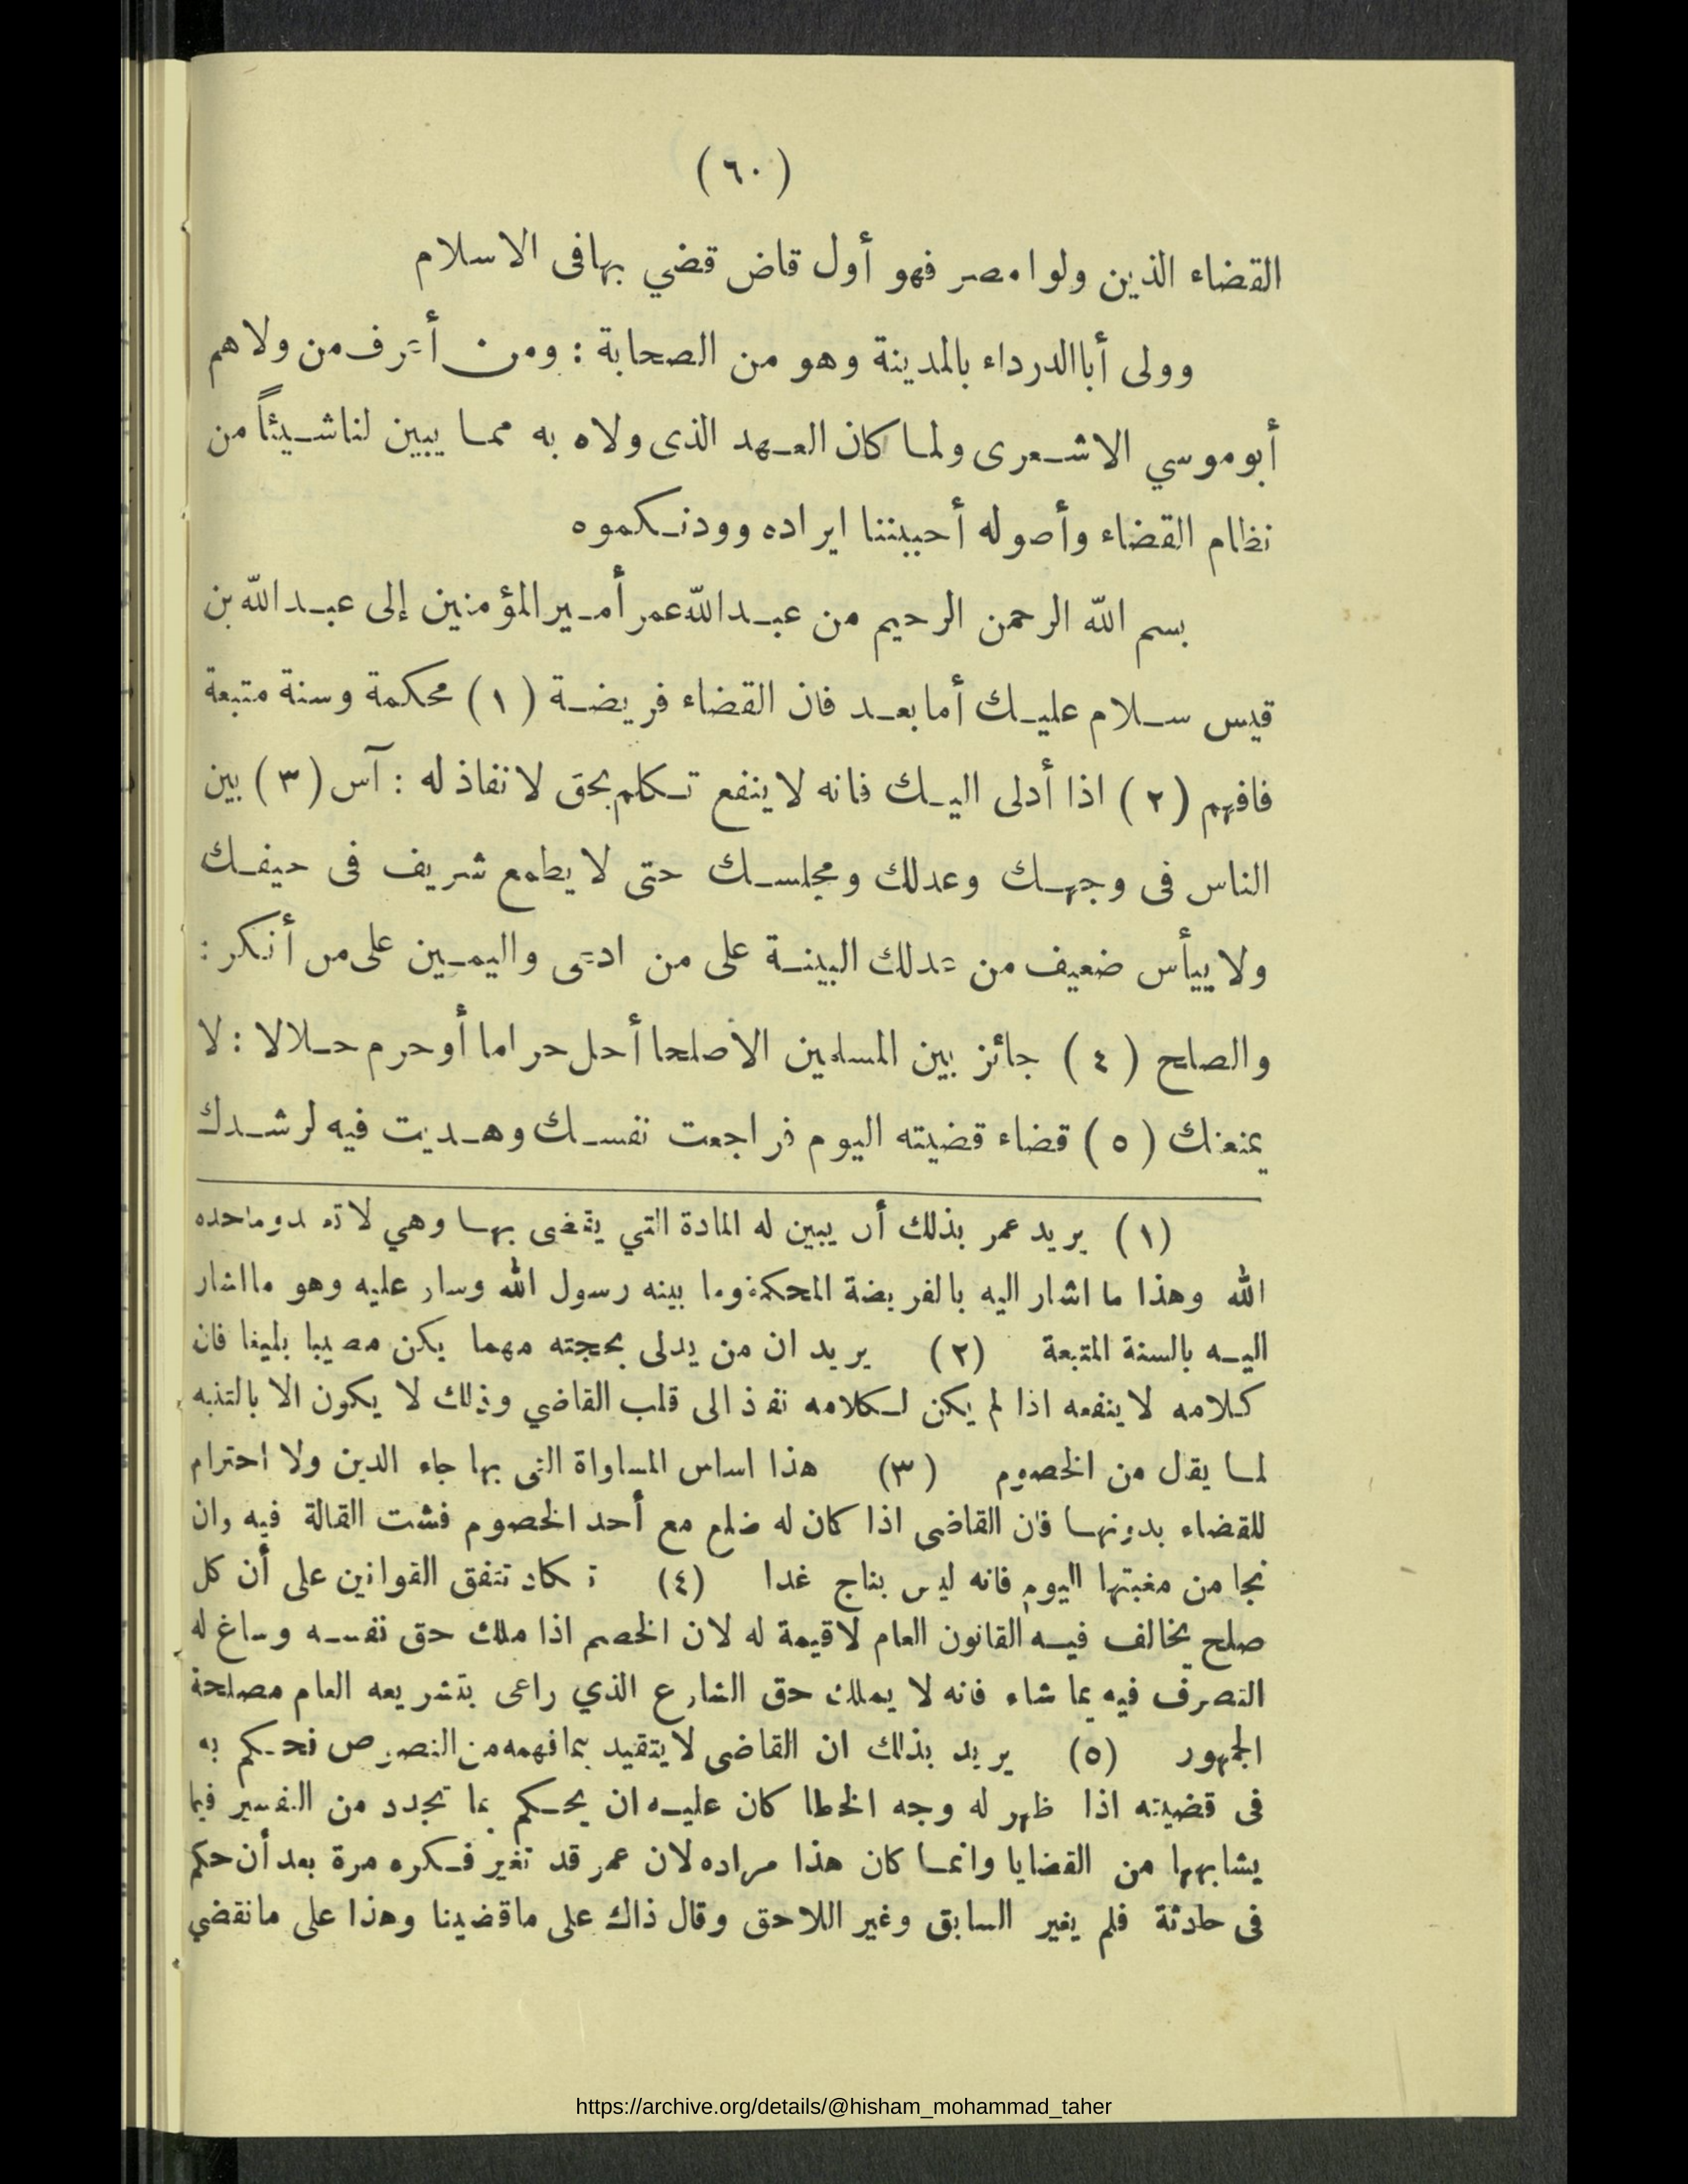 (٦٠)
القضاء الذين ولوا مصر فهو أول قاض قضي بها فى الاسلام
وولى أبا الدرداء بالمدينة وهو من الصحابة : ومن أشرف من ولاهم
أبو موسي الاشعرى ولما كان العهد الذى ولاه به مما يبين لنا شيئاً من
نظام القضاء وأصوله أحببننا ايراده وودنكموه
بسم الله الرحمن الرحيم من عبد الله عمر أمير المؤمنين إلى عبد الله بن
قيس سلام عليك أما بعد فان القضاء فريضة (١) محكمة وسنة متبعة
فافهم (٢) اذا أدلى اليك فانه لا ينفع تكلم بحق لا نفاذ له : آس (٣) بين
الناس فى وجهك وعدلك ومجلسك حتى لا يطمع شريف فى حيفك
ولا ييأس ضعيف من عدلك البينة على من ادعى واليمين على من أنكر :
والصلح (٤) جائز بين المسلمين الا صلحا أحل حراما أو حرم حلالا : لا
يمنعنك (٥) قضاء قضيته اليوم فراجعت نفسك وهديت فيه لرشدك
(١) يريد عمر بذلك أن يبين له المادة التي يقضى بها وهي لا تعدو ما حده
الله وهذا ما اشار اليه بالفريضة المحكمة وما بينه رسول الله وسار عليه وهو ما اشار
اليه بالسنة المتبعة (٢) يريد ان من يدلى بحجته مهما يكن مصيبا بليغا فان
كلامه لا ينفعه اذا لم يكن لكلامه نفذ الى قلب القاضي وذلك لا يكون الا بالتنبه
لما يقال من الخصوم (٣) هذا اساس المساواة التى بها جاء الدين ولا احترام
للقضاء بدونها فان القاضى اذا كان له ضلع مع أحد الخصوم فشت القالة فيه وان
نجا من مغبتها اليوم فانه ليس بناج غدا (٤) تكاد تتفق القوانين على أن كل
صلح يخالف فيه القانون العام لا قيمة له لان الخصم اذا ملك حق نفسه وساغ له
التصرف فيه بما شاء فانه لا يملك حق الشارع الذي راعى بتشريعه العام مصلحة
الجمهور (٥) يريد بذلك ان القاضى لا يتقيد بما فهمه من النصوص فحكم به
فى قضيته اذا ظهر له وجه الخطا كان عليه ان يحكم بما تجدد من التفسير فيما
يشابهها من القضايا وانما كان هذا مراده لان عمر قد تغير فكره مرة بعد أن حكم
فى حادثة فلم يغير السابق وغير اللاحق وقال ذاك على ما قضينا وهذا على ما نقضي
https://archive.org/details/@hisham_mohammad_taher